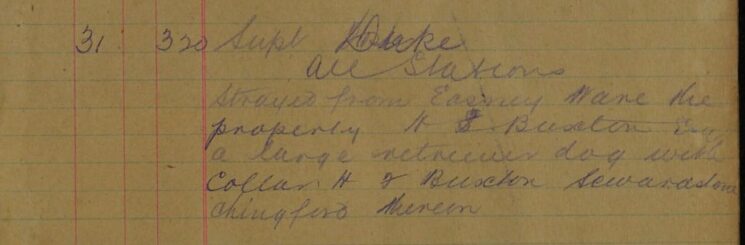 31 320 Supt
All Stations
Strayed from Easney Ware the
property H E Buxton Esq
a large retriever dog with
Collar H F Buxton Sewardstone
Chingford thereon